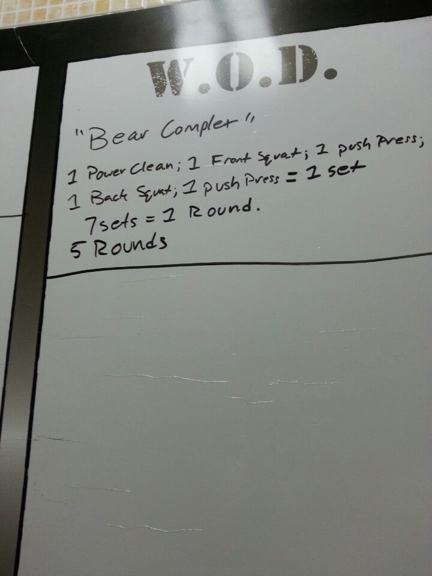 W.O.D.
"Bear Complex"
1 Power Clean; 1 Front Squat; 1 push Press;
1 Back Squat; 1 push Press = 1 set
7sets = 1 Round.
5 Rounds